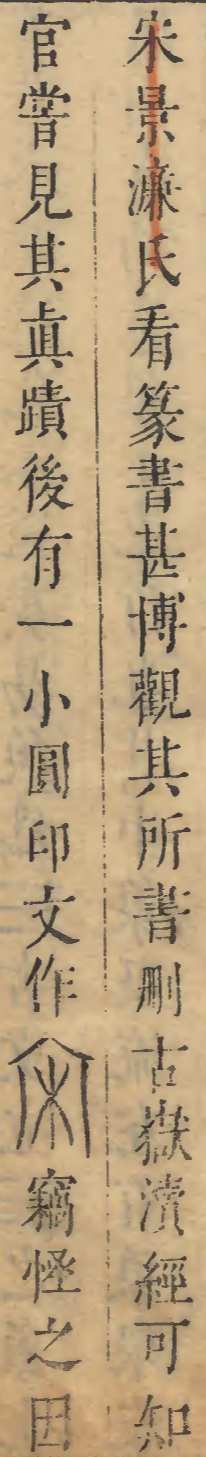 宋景濂氏看篆書甚博觀其所書刪古嶽瀆經可知
官嘗見其真蹟後有一小圓印文作宋竊怪之因